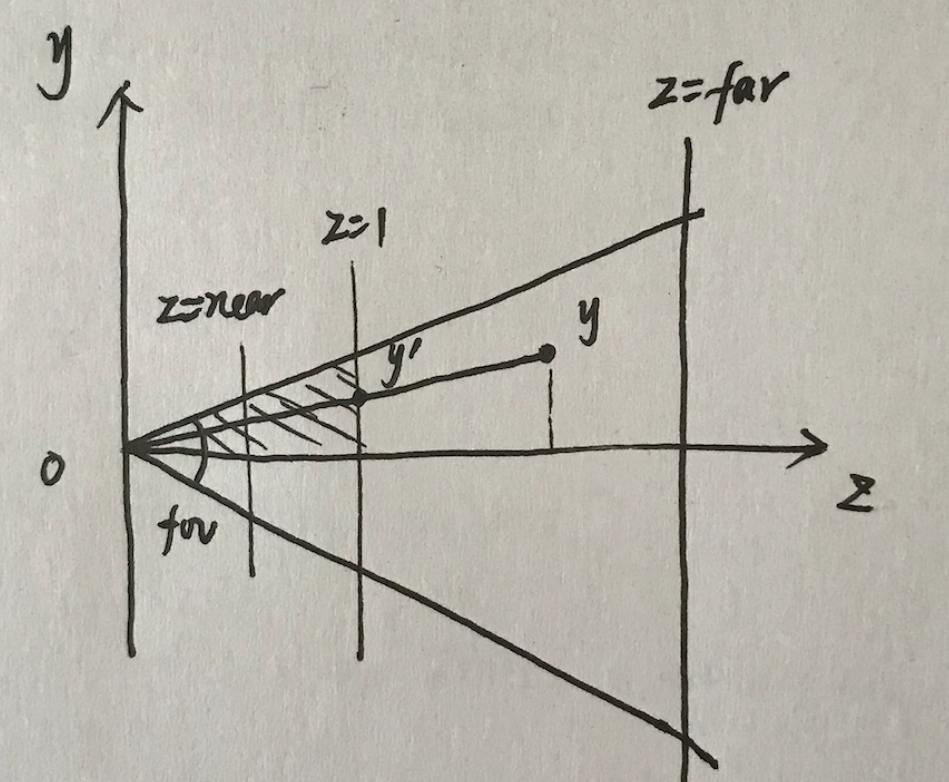 y
z=far
z=1
z=near
y
y'
0
z
fov